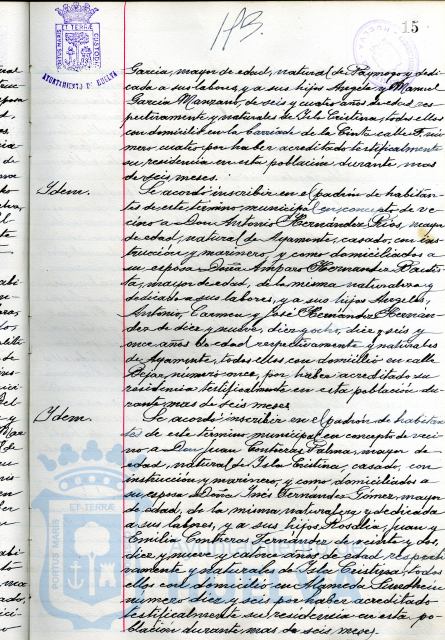 113.
15
PORTUS MARIS ET TERRÆ CUSTODIA
AYUNTAMIENTO DE HUELVA
García, mayor de edad, natural de Paymogo y dedi-
cada a sus labores, y a sus hijos Ángela y Manuel
García Manzano, de seis y cuatro años de edad res-
pectivamente y naturales de Isla Cristina, todos ellos
con domicilio en la barriada de la Cinta calle F nú-
mero cuatro por haber acreditado testificalmente
su residencia en esta población durante mas
de seis meses.
Ydem.
Se acordó inscribir en el padrón de habitan-
tes de este término municipal en concepto de ve-
cino a Don Antonio Hernández Ríos, mayor
de edad, natural de Ayamonte, casado, con ins-
trucción y marinero, y como domiciliados a
su esposa Doña Amparo Hernandez Bautis-
ta, mayor de edad, de la misma naturaleza y
dedicada a sus labores, y a sus hijos Angeles,
Antonio, Carmen y José Hernández Hernán-
dez de diez y nueve, diez y ocho, diez y seis y
once años de edad respectivamente y naturales
de Ayamonte, todos ellos con domicilio en calle
Bejar, número once, por haber acreditado su
residencia testificalmente en esta población du-
rante mas de seis meses.
Ydem.
Se acordó inscribir en el padrón de habitan-
tes de este término municipal en concepto de veci-
no a Don Juan Contreras Palma, mayor de
edad, natural de Isla Cristina, casado, con
instrucción y marinero, y como domiciliados a
su esposa Doña Inés Fernandez Gómez, mayor
de edad, de la misma naturaleza y dedicada
a sus labores, y a sus hijos Rosalia, Juan y
Emilio Contreras Fernández de veinte y dos,
diez y nueve y catorce años de edad respecti-
vamente y naturales de Isla Cristina, todos
ellos con domicilio en
número diez y seis por haber acreditado
testificalmente su residencia en esta po-
blación durante mas de seis meses.
Ayuntamiento de
HUELVA